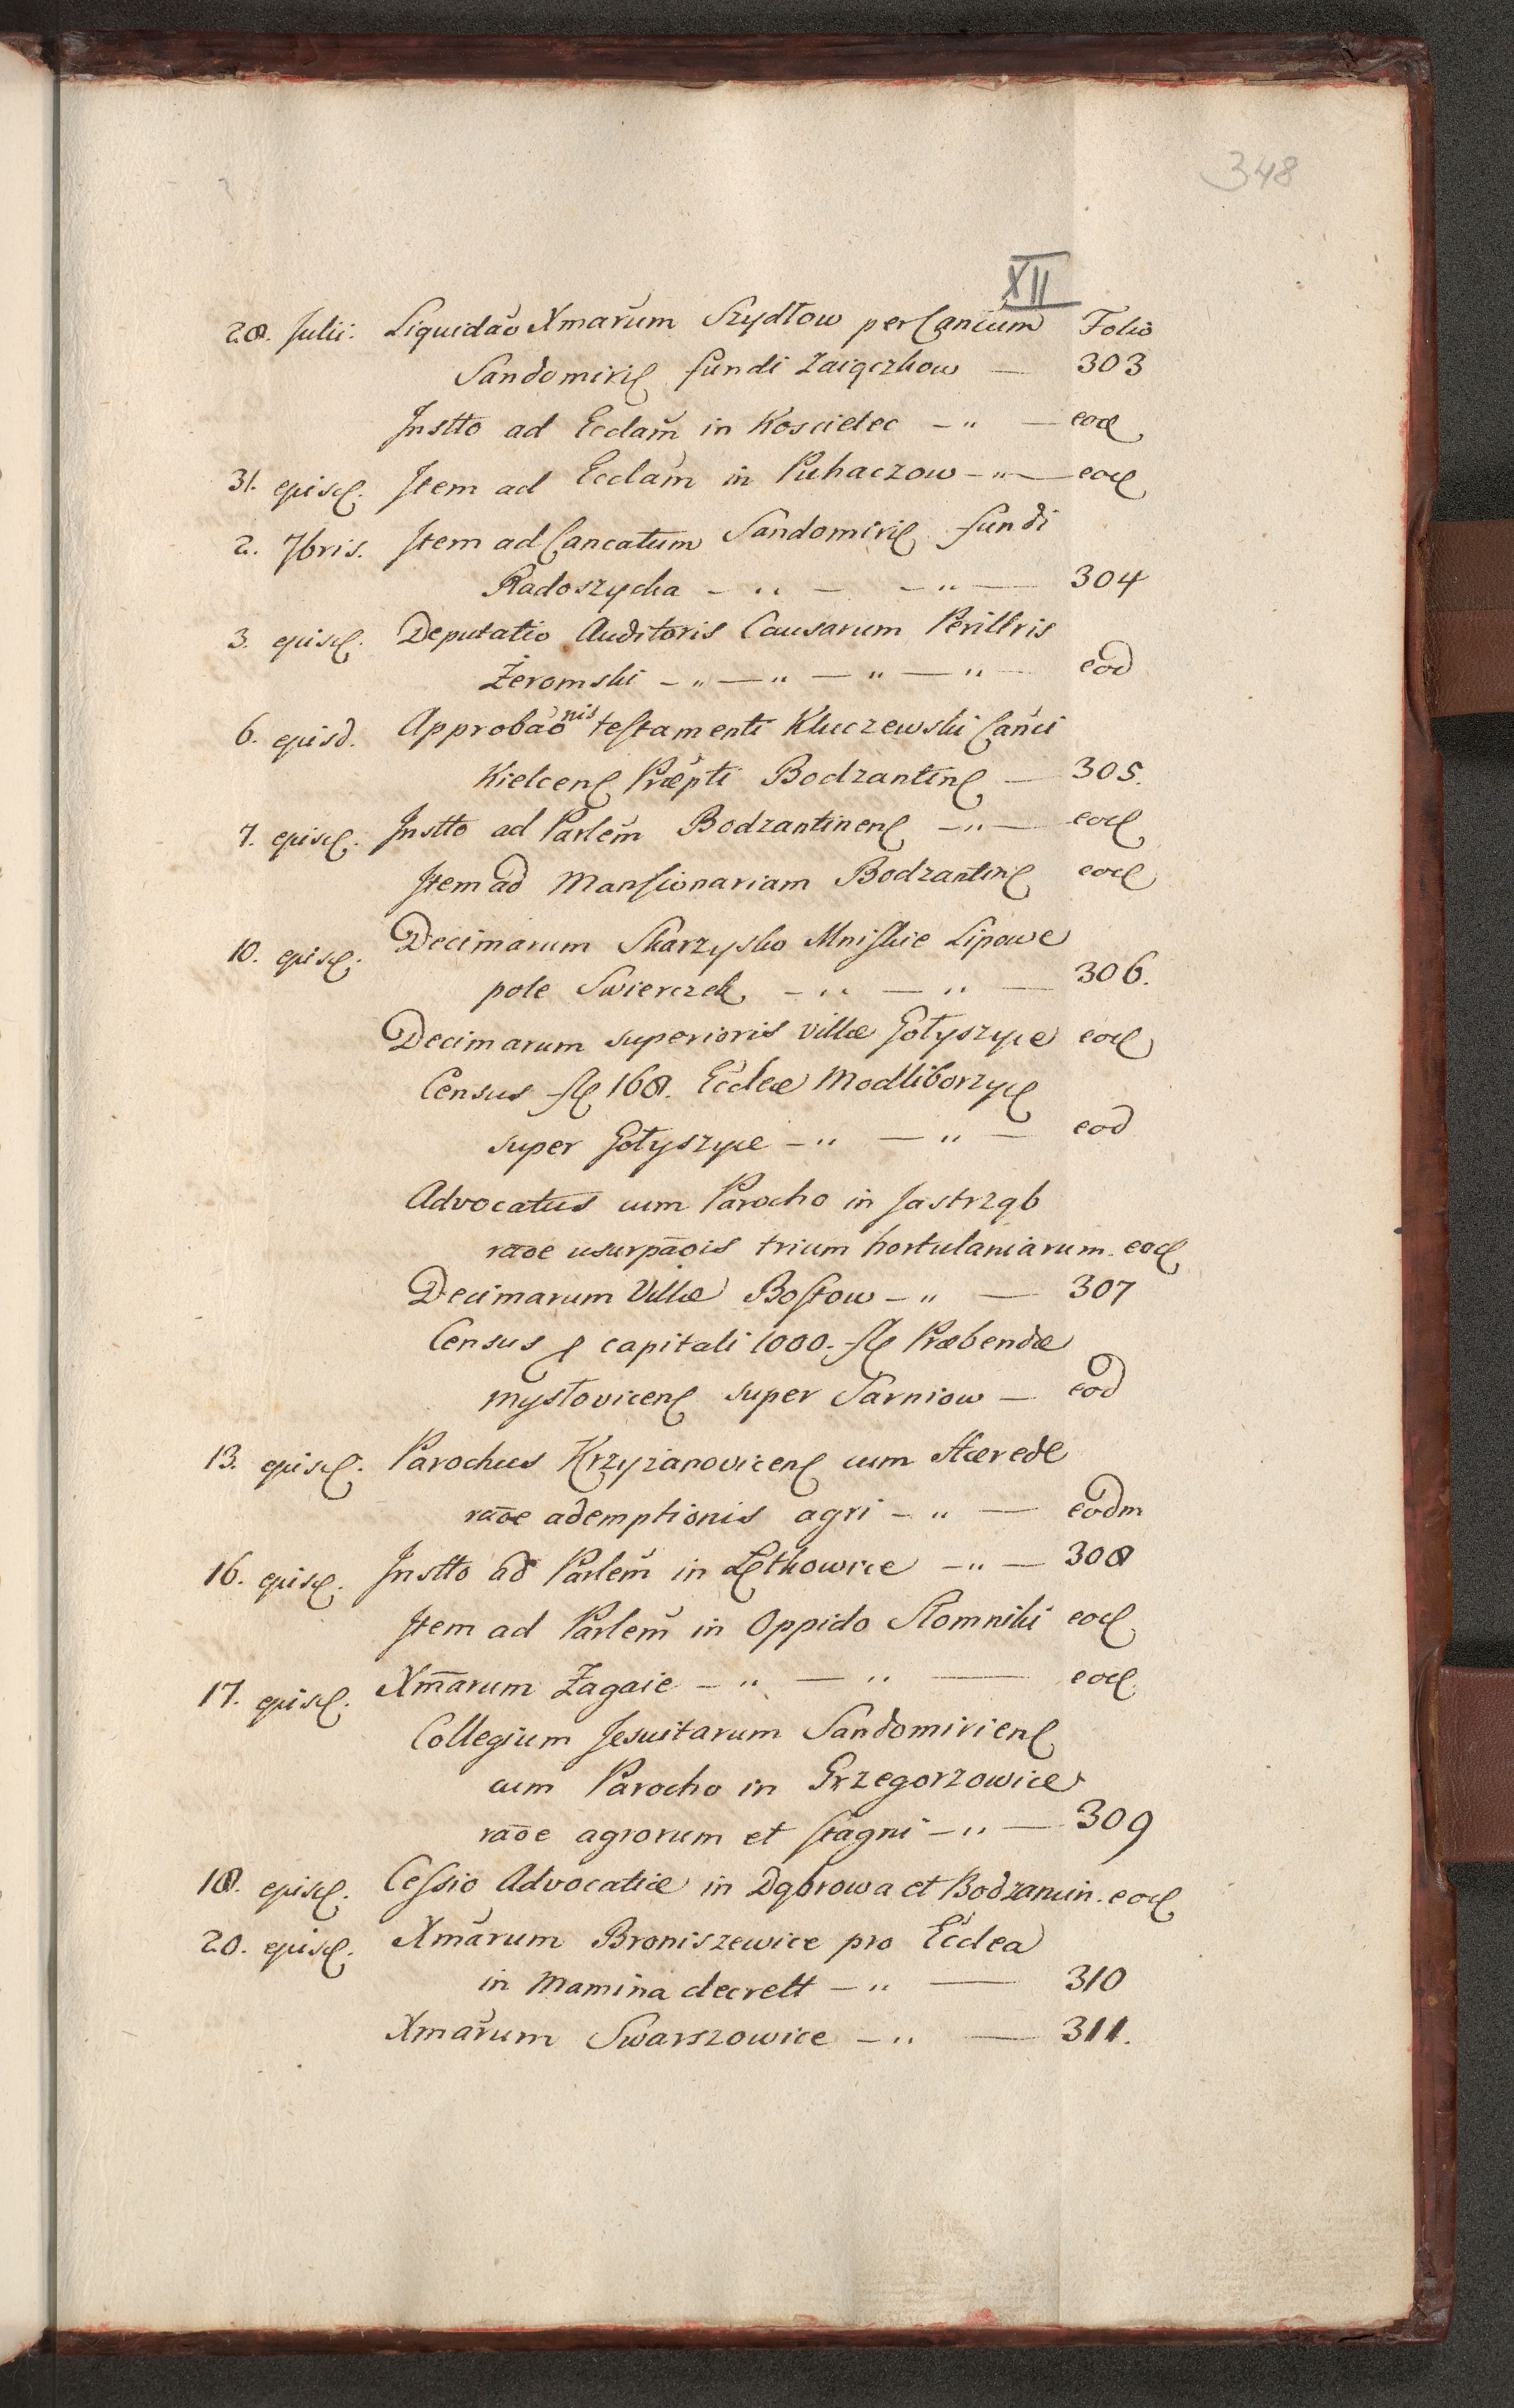 348
XII
28. Julii. Liquidao Xmarum Szydłow per Cancum Folio
Sandomirię fundi Zaiączkow — 303
Instto ad Ecclam in Koscielec — " — eod
31. ejusd. Item ad Ecclam in Puhaczow — " — eod
2. 7bris. Item ad Cancatum Sandomirię fundi
Radoszycka — " — — " — 304
3. ejusd. Deputatio Auditoris Causarum Perillris
Żeromski — " — " — " — " — eod
6. ejusd. Approbaonis testamenti Kluczewski Canci
Kielcens Præpti Bodzantins — 305.
7. ejusd. Instto ad Parlem Bodzantinens — " — eod
Item ad Mansionariam Bodzantins eod
10. ejusd. Decimarum Skarzysko Mniskie Lipowe
pole Swierczek — " — " — 306.
Decimarum superioris villæ Gołyszyce eod
Census fl 168. Eccleæ Modliborzyc
super Gołyszyce — " — " — eod
Advocatus cum Parocho in Jastrząb
raoe usurpaois trium hortulaniarum. eod
Decimarum Villæ Bostow — " — 307
Census a capitali 1000. fl Præbendæ
mysłovicens super Tarniow — eod
13. ejusd. Parochus Krzyzanovicens cum Hærede
raoe ademptionis agri — " — eodm
16. ejusd. Instto ad Parlem in Łętkowice — " — 308
Item ad Parlem in Oppido Słomniki eod
17. ejusd. Xmarum Zagaie — " — " — eod
Collegium Jesuitarum Sandomiriens
cum Parocho in Grzegorzowice
raoe agrorum et stagni — " — 309
18. ejusd. Cessio Advocatiæ in Dąbrowa et Bodzancin. eod
20. ejusd. Xmarum Broniszewice pro Ecclea
in Mamina decrett — " — 310
Xmarum Swarszowice — " — 311.